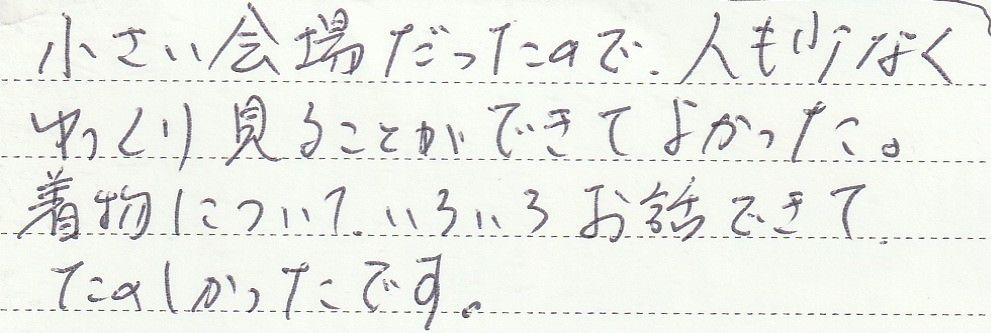 小さい会場だったので、人も少なく
ゆっくり見ることができてよかった。
着物について、いろいろお話できて、
たのしかったです。